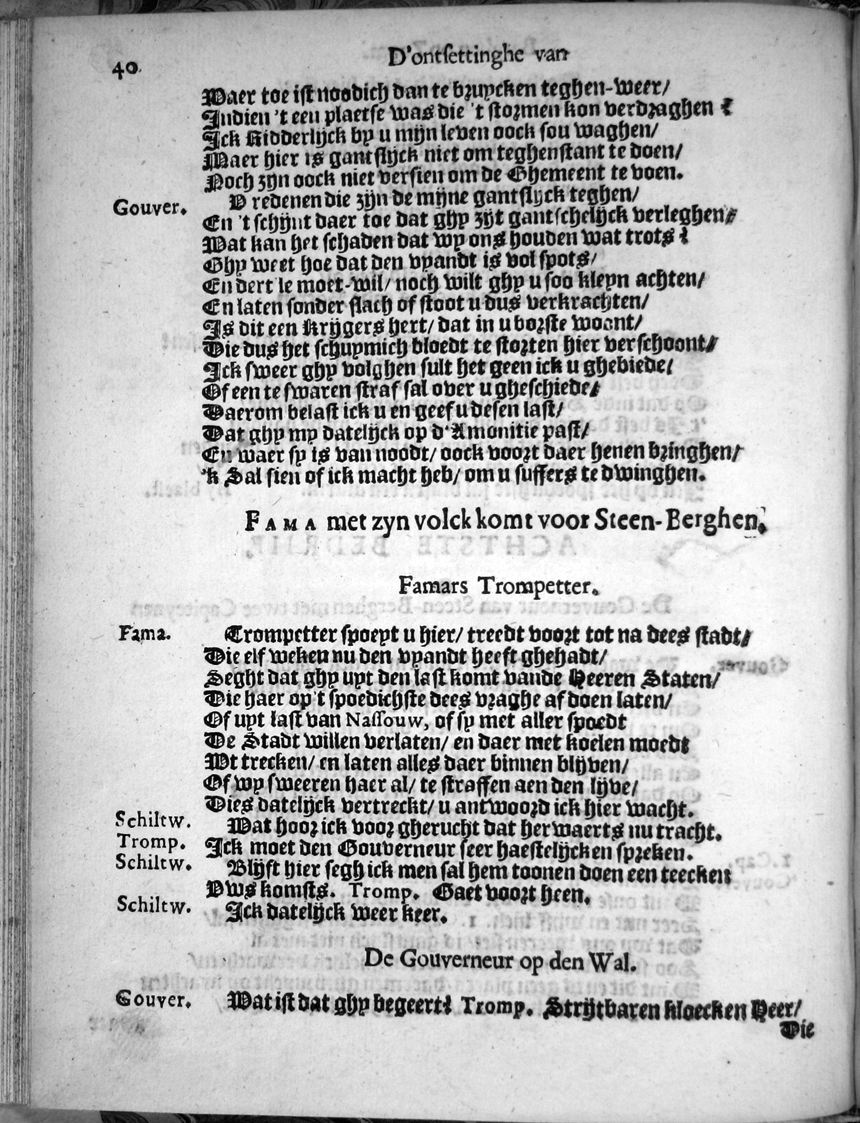 40.
D'ontsettinghe van
Waer toe ist noodich dan te bruycken teghen-weer/
Indien 't een plaetse was die 't stormen kon verdraghen?
Ick Ridderlijck by u mijn leven oock sou waghen/
Maer hier is gantslijck niet om teghenstant te doen/
Noch zijn oock niet versien om de Ghemeent te voen.
Gouver. U redenen die zijn de mijne gantslijck teghen/
En 't schijnt daer toe dat ghy zijt gantschelijck verleghen/
Wat kan het schaden dat wy ons houden wat trots?
Ghy weet hoe dat den vyandt is vol spots/
En dert'le moet-wil/ noch wilt ghy u soo kleyn achten/
En laten sonder slach of stoot u dus verkrachten/
Is dit een Krijgers hert/ dat in u borste woont/
Die dus het schuymich bloedt te storten hier verschoont/
Ick sweer ghy volghen sult het geen ick u ghebiede/
Of een te swaren straf sal over u gheschiede/
Daerom belast ick u en geef u desen last/
Dat ghy my datelijck op d'Amonitie past/
En waer sy is van noodt/ oock voort daer henen bringhen/
'k Sal sien of ick macht heb/ om u suffers te dwinghen.
FAMA met zyn volck komt voor Steen-Berghen.
Famars Trompetter.
Fama. Trompetter spoeyt u hier/ treedt voort tot na dees stadt/
Die elf weken nu den vyandt heeft ghehadt/
Seght dat ghy uyt den last komt vande Heeren Staten/
Die haer op't spoedichste dees vraghe af doen laten/
Of uyt last van Nassouw, of sy met aller spoedt
De Stadt willen verlaten/ en daer met koelen moedt
Wt trecken/ en laten alles daer binnen blijven/
Of wy sweeren haer al/ te straffen aen den lijve/
Dies datelijck vertreckt/ u antwoord ick hier wacht.
Schiltw. Wat hoor ick voor gherucht dat herwaerts nu tracht.
Tromp. Ick moet den Gouverneur seer haestelijcken spreken.
Schiltw. Blijft hier segh ick men sal hem toonen doen een teecken
Uws komsts. Tromp. Gaet voort heen.
Schiltw. Ick datelijck weer keer.
De Gouverneur op den Wal.
Gouver. Wat ist dat ghy begeert? Tromp. Strijtbaren kloecken Heer/
Die